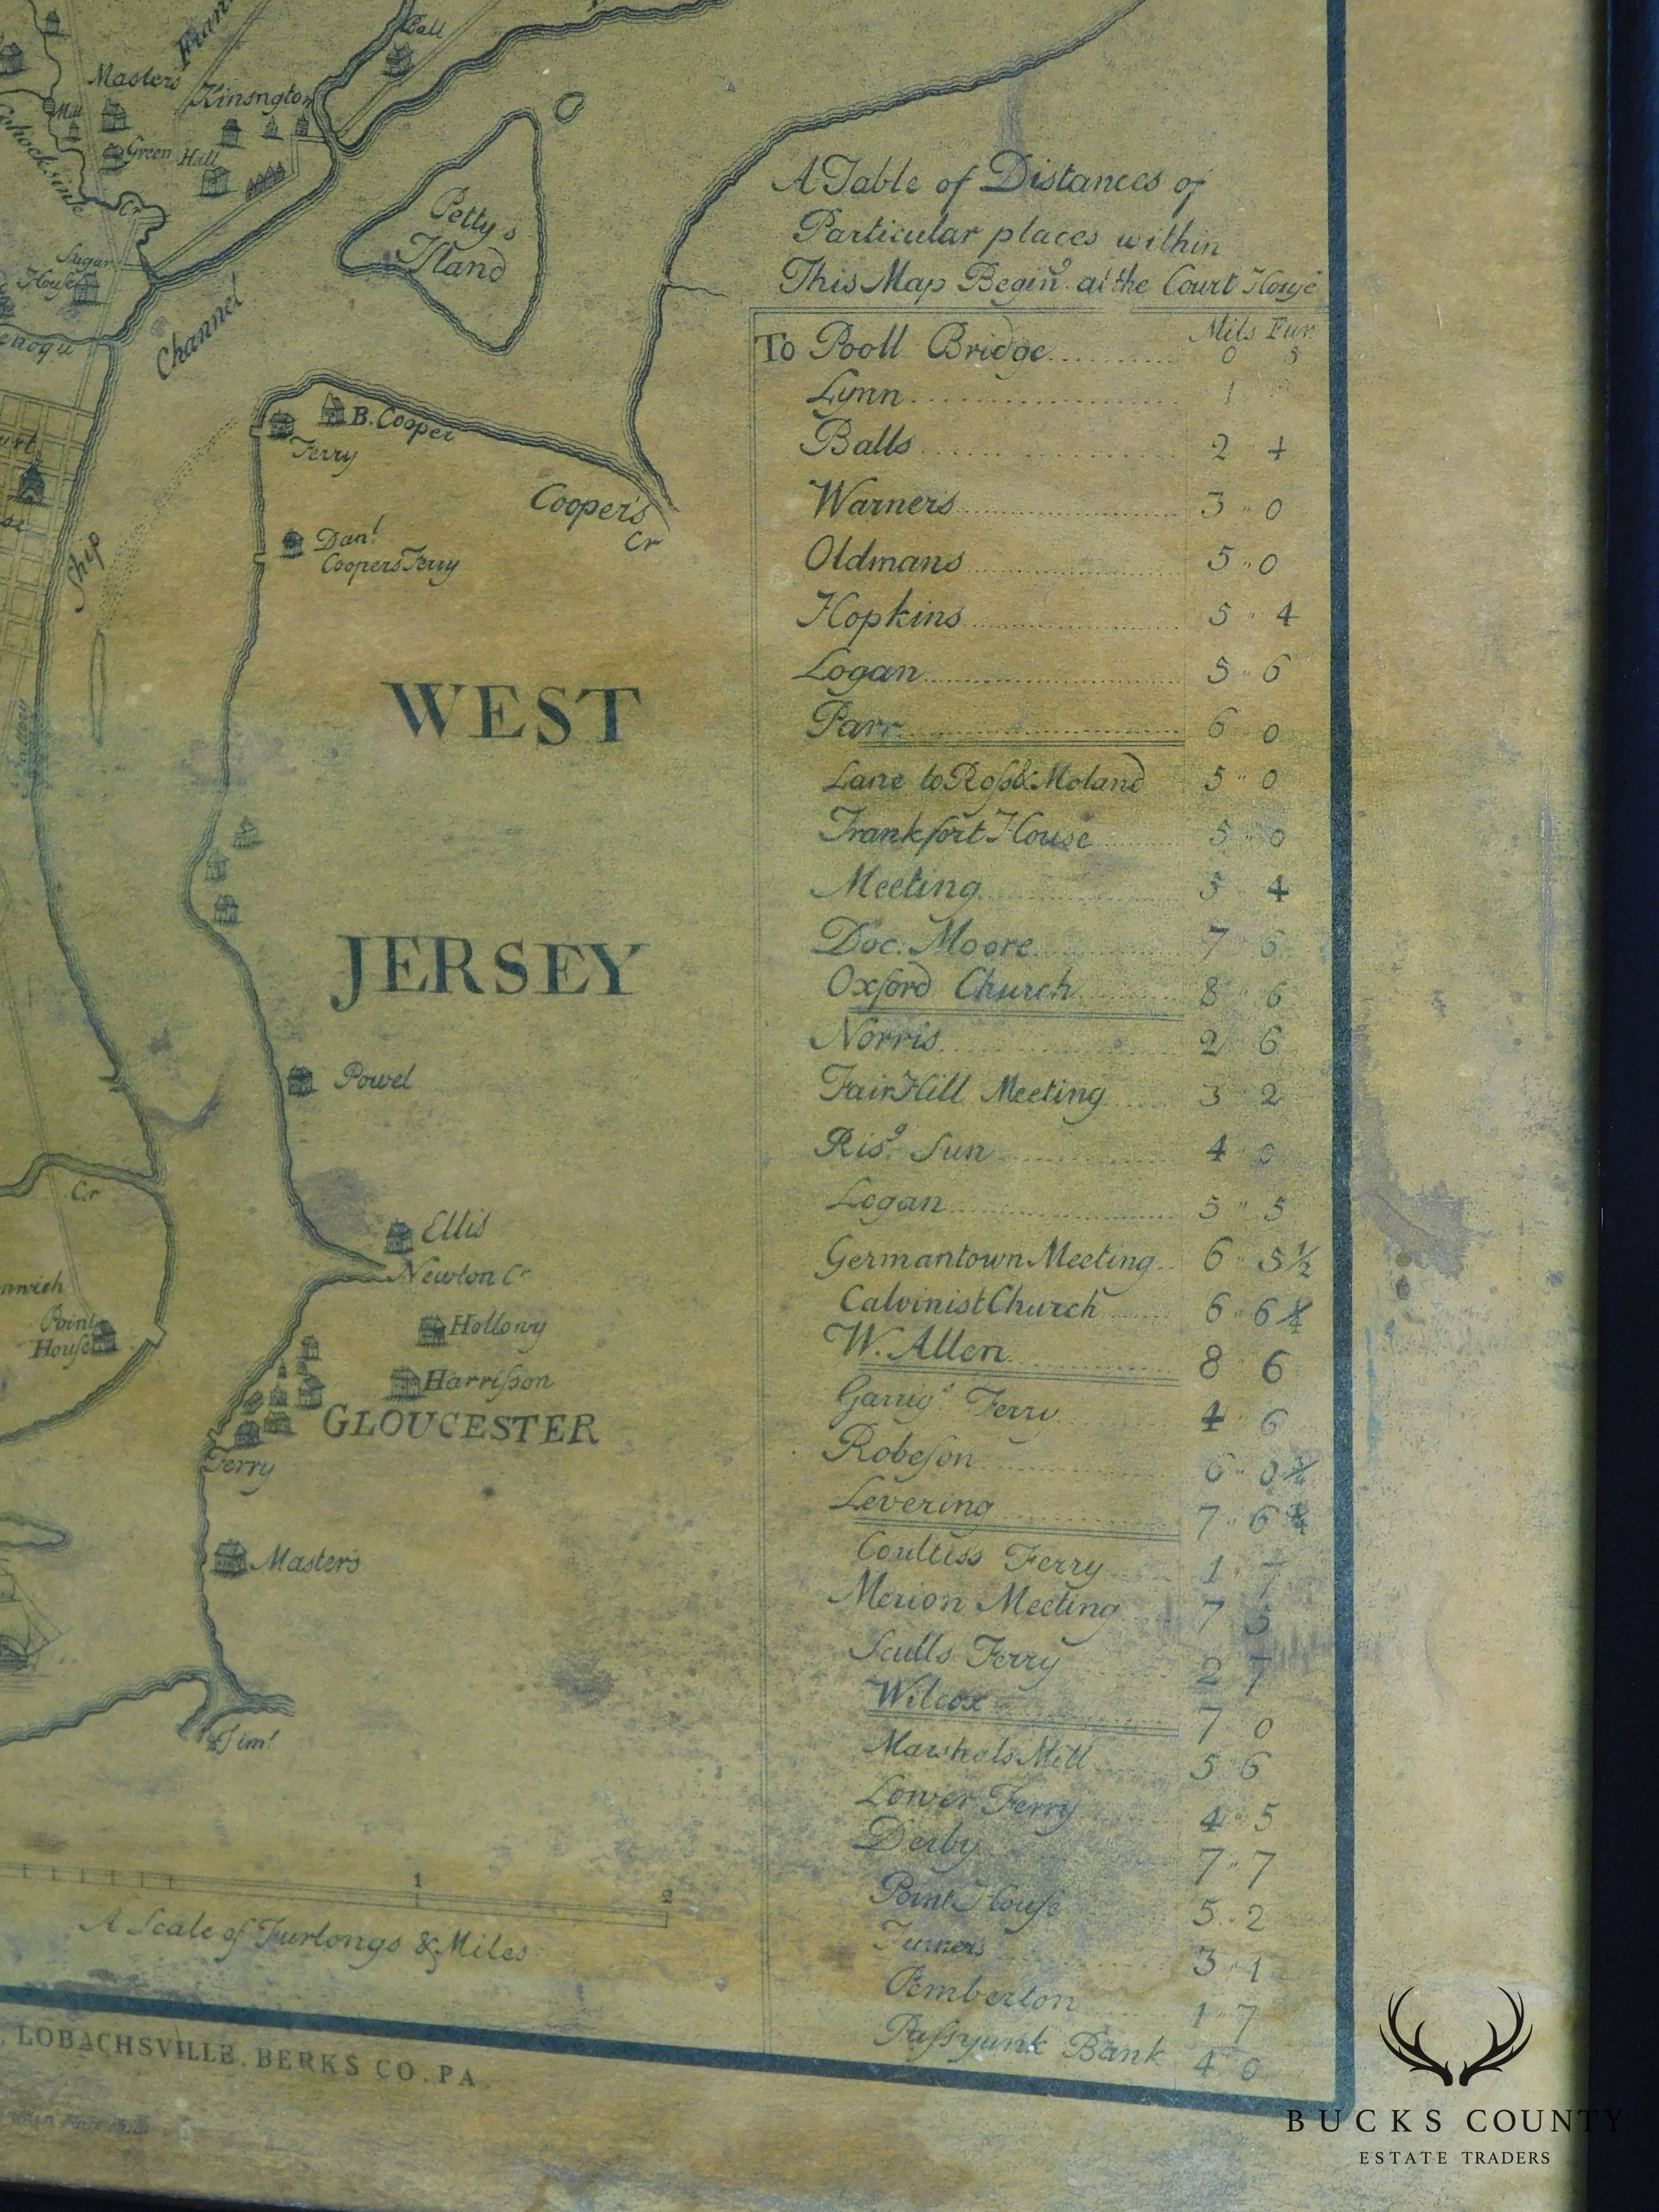 Ball
Masters
Kinsngton
Mill
Green Hill
Cr
Sugar
House
Channel
Petty's
Iland
B. Cooper
Ferry
Cooper's
Cr
Ship
Dan!
Coopers Ferry
WEST
JERSEY
Powel
Cr
Ellis
Newton Cr
Point
House
Hollowy
Harriſson
GLOUCESTER
Ferry
Masters
Tim!
1 2
A Scale of Furlongs & Miles
A Table of Distances of
Particular places within
This Map Begin.g at the Court Houſe
Mils Fur
To Pooll Bridge 0 3
Lynn 1
Balls 2 4
Warners 3 0
Oldmans 5 0
Hopkins 5 4
Logan 5 6
Parr 6 0
Lane to Roſs & Moland 5 0
Frankfort House 5 0
Meeting 5 4
Doc. Moore 7 6
Oxford Church 8 6
Norris 2 6
Fair Hill Meeting 3 2
Ris.g Sun 4 0
Logan 5 5
Germantown Meeting 6 5½
Calvinist Church 6 6¼
W. Allen 8 6
Garrig.s Ferry 4 6
Robeſon 6 0¾
Levering 7 6¾
Coultiss Ferry 1 7
Merion Meeting 7 5
Sculls Ferry 2 7
Wilcox 7 0
Marshals Mill 5 6
Lower Ferry 4 5
Derby 7 7
Point Houſe 5 2
Turners 3 1
Pemberton 1 7
Paſsyunk Bank 4 0
LOBACHSVILLE, BERKS CO. PA.
BUCKS COUNTY
ESTATE TRADERS